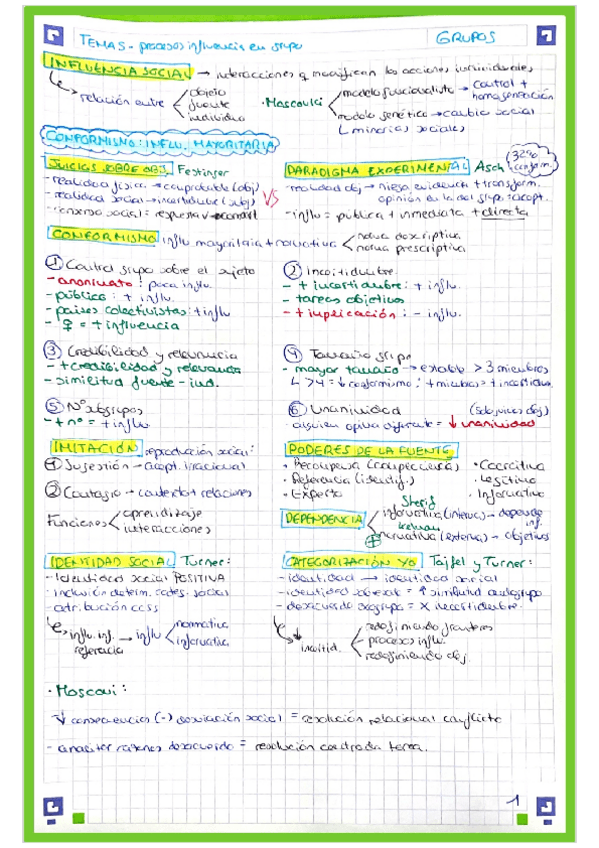 TEMA 5 - procesos influencia en grupo
GRUPOS
INFLUENCIA SOCIAL → interacciones q modifican las acciones individuales
relación entre
objeto
fuente
individuo
· Moscovici
modelo funcionalista → control + homogeneización
modelo genético → cambio social
↳ minorías sociales
CONFORMISMO: INFLU. MAYORITARIA
JUICIOS SOBRE OBJ. Festinger
- realidad física → comprobable (obj)
- realidad social → incertidumbre (subj)
- consenso social = respuesta v
VS
PARADIGMA EXPERIMENTAL Asch
32% conform.
- realidad obj → niega evidencia + transform.
opinión en la del grupo
- influ = pública + inmediata + directa
CONFORMISMO influ mayoritaria + normativa
norma descriptiva
norma prescriptiva
① Control grupo sobre el sujeto
- anonimato: poca influ.
- público: + influ.
- países colectivistas: + influ
- ♀ = + influencia
② Incertidumbre
- + incertidumbre: + influ.
- tareas objetivas
- + implicación: - influ.
③ Credibilidad y relevancia
- + credibilidad y relevancia
- similitud fuente - ind.
④ Tamaño grupo
- mayor tamaño → estable > 3 miembros
↳ >4 = ↓ conformismo: + miembros + incertidum.
⑤ Nº subgrupos
- + nº = + influ
⑥ Unanimidad
- alguien opina diferente = ↓ unanimidad
IMITACIÓN reproducción social:
① Sugestión → acept. irracional
② Contagio → contexto + relaciones
Funciones
aprendizaje
interacciones
PODERES DE LA FUENTE
· Recompensa
· Referencia (identif.)
· Experto
· Coercitivo
· Legítimo
· Informativo
DEPENDENCIA
Sherif
informativa (interna) → depende inf.
Kelman
normativa (externa) → objetivos
IDENTIDAD SOCIAL Turner:
- Identidad social POSITIVA
- inclusión determ. categ. social
- atribución
influ. inf. referencia → influ
normativa
informativa
CATEGORIZACIÓN YO Tajfel y Turner:
- identidad → identidad social
- identidad = ↑ similitud endogrupo
- desacuerdo exogrupo = X incertidumbre
↓ incertid.
redefiniendo fronteras
- proceso influ.
redefiniendo obj.
· Moscovi:
↓ consecuencias (-) desviación social = resolución relacional conflicto
- analizar razones desacuerdo = resolución centrada tema.
1